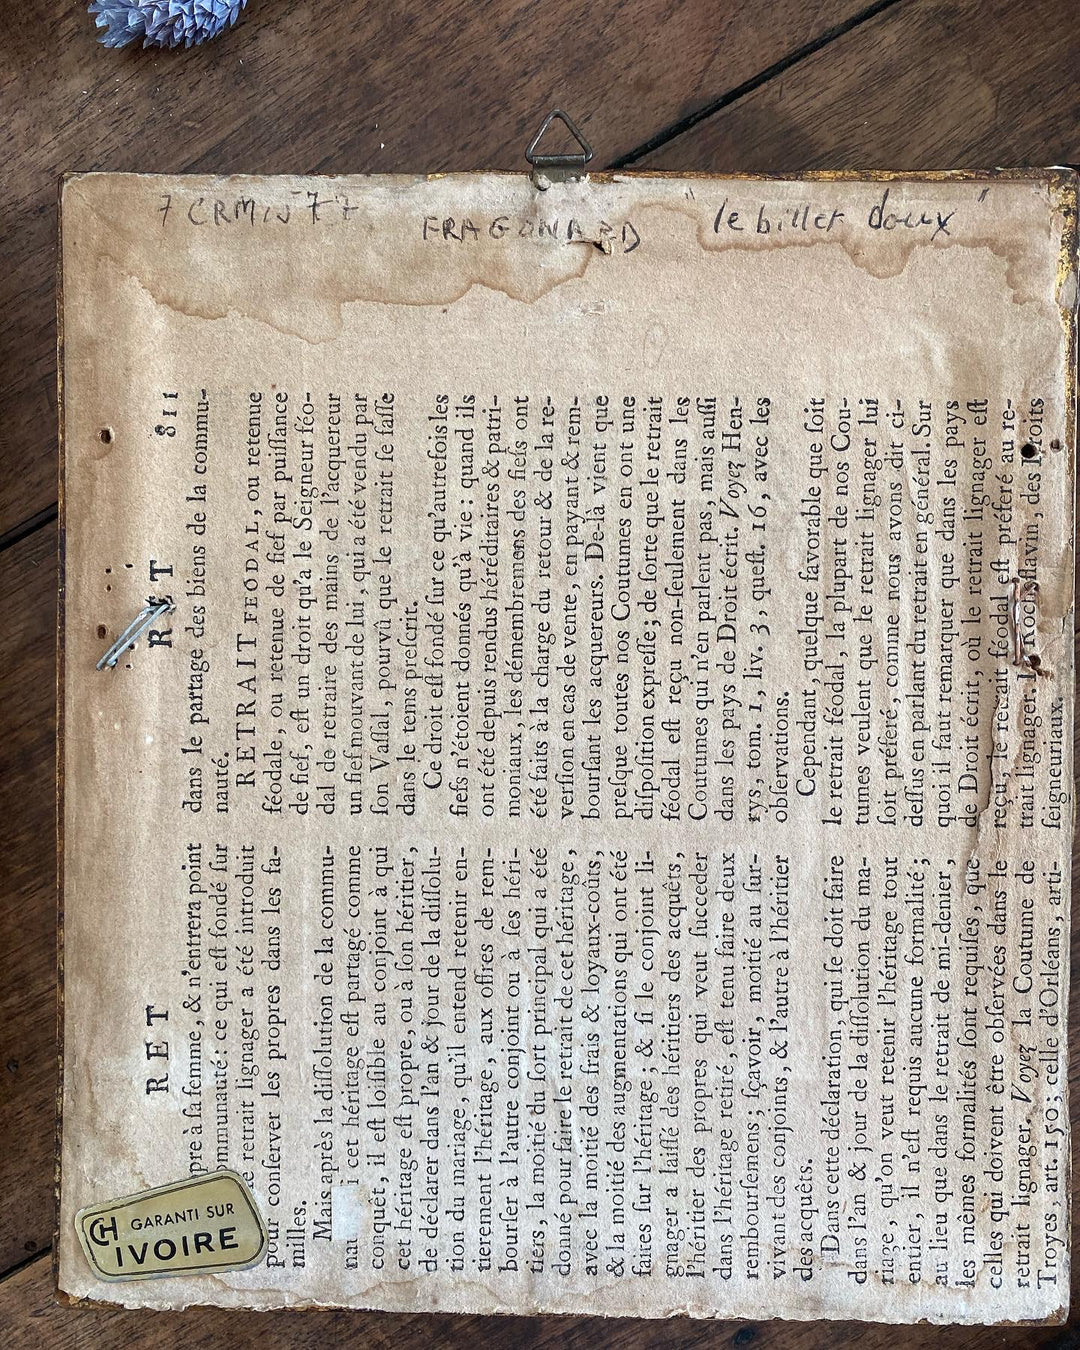 FRAGONARD "le billet doux"
RET
pre à ſa femme, & n'entrera point
mmunauté: ce qui eſt fondé ſur
e retrait lignager a été introduit
pour conſerver les propres dans les fa-
milles.
Mais après la diſſolution de la commu-
cet héritage eſt partagé comme
conquêt, il eſt loiſible au conjoint à qui
cet héritage eſt propre, ou à ſon héritier,
de déclarer dans l'an & jour de la diſſolu-
tion du mariage, qu'il entend retenir en-
tierement l'héritage, aux offres de rem-
bourſer à l'autre conjoint ou à ſes héri-
tiers, la moitié du ſort principal qui a été
donné pour faire le retrait de cet héritage,
avec la moitié des frais & loyaux-coûts,
& la moitié des augmentations qui ont été
faites ſur l'héritage; & ſi le conjoint li-
gnager a laiſſé des héritiers des acquêts,
l'héritier des propres qui veut ſucceder
dans l'héritage retiré, eſt tenu faire deux
rembourſemens; ſçavoir, moitié au ſur-
vivant des conjoints, & l'autre à l'héritier
des acquêts.
Dans cette déclaration, qui ſe doit faire
dans l'an & jour de la diſſolution du ma-
riage, qu'on veut retenir l'héritage tout
entier, il n'eſt requis aucune formalité;
au lieu que dans le retrait de mi-denier,
les mêmes formalités ſont requiſes, que
celles qui doivent être obſervées dans le
retrait lignager. Voyez la Coutume de
Troyes, art. 150; celle d'Orléans, arti-
RET 811
dans le partage des biens de la commu-
nauté.
RETRAIT FÉODAL, ou retenue
féodale, ou retenue de fief par puiſſance
de fief, eſt un droit qu'a le Seigneur féo-
dal de retraire des mains de l'acquereur
un fief mouvant de lui, qui a été vendu par
ſon Vaſſal, pourvû que le retrait ſe faſſe
dans le tems preſcrit.
Ce droit eſt fondé ſur ce qu'autrefois les
fiefs n'étoient donnés qu'à vie: quand ils
ont été depuis rendus héréditaires & patri-
moniaux, les démembremens des fiefs ont
été faits à la charge du retour & de la re-
verſion en cas de vente, en payant & rem-
bourſant les acquereurs. De-là vient que
preſque toutes nos Coutumes en ont une
diſpoſition expreſſe; de ſorte que le retrait
féodal eſt reçu non-ſeulement dans les
Coutumes qui n'en parlent pas, mais auſſi
dans les pays de Droit écrit. Voyez Hen-
rys, tom. 1, liv. 3, queſt. 16, avec les
obſervations.
Cependant, quelque favorable que ſoit
le retrait féodal, la plupart de nos Cou-
tumes veulent que le retrait lignager lui
ſoit préféré, comme nous avons dit ci-
deſſus en parlant du retrait en général. Sur
quoi il faut remarquer que dans les pays
de Droit écrit, où le retrait lignager eſt
reçu, le retrait féodal eſt préféré au re-
trait lignager. Rocheflavin, des Droits
ſeigneuriaux,
CH GARANTI SUR
IVOIRE